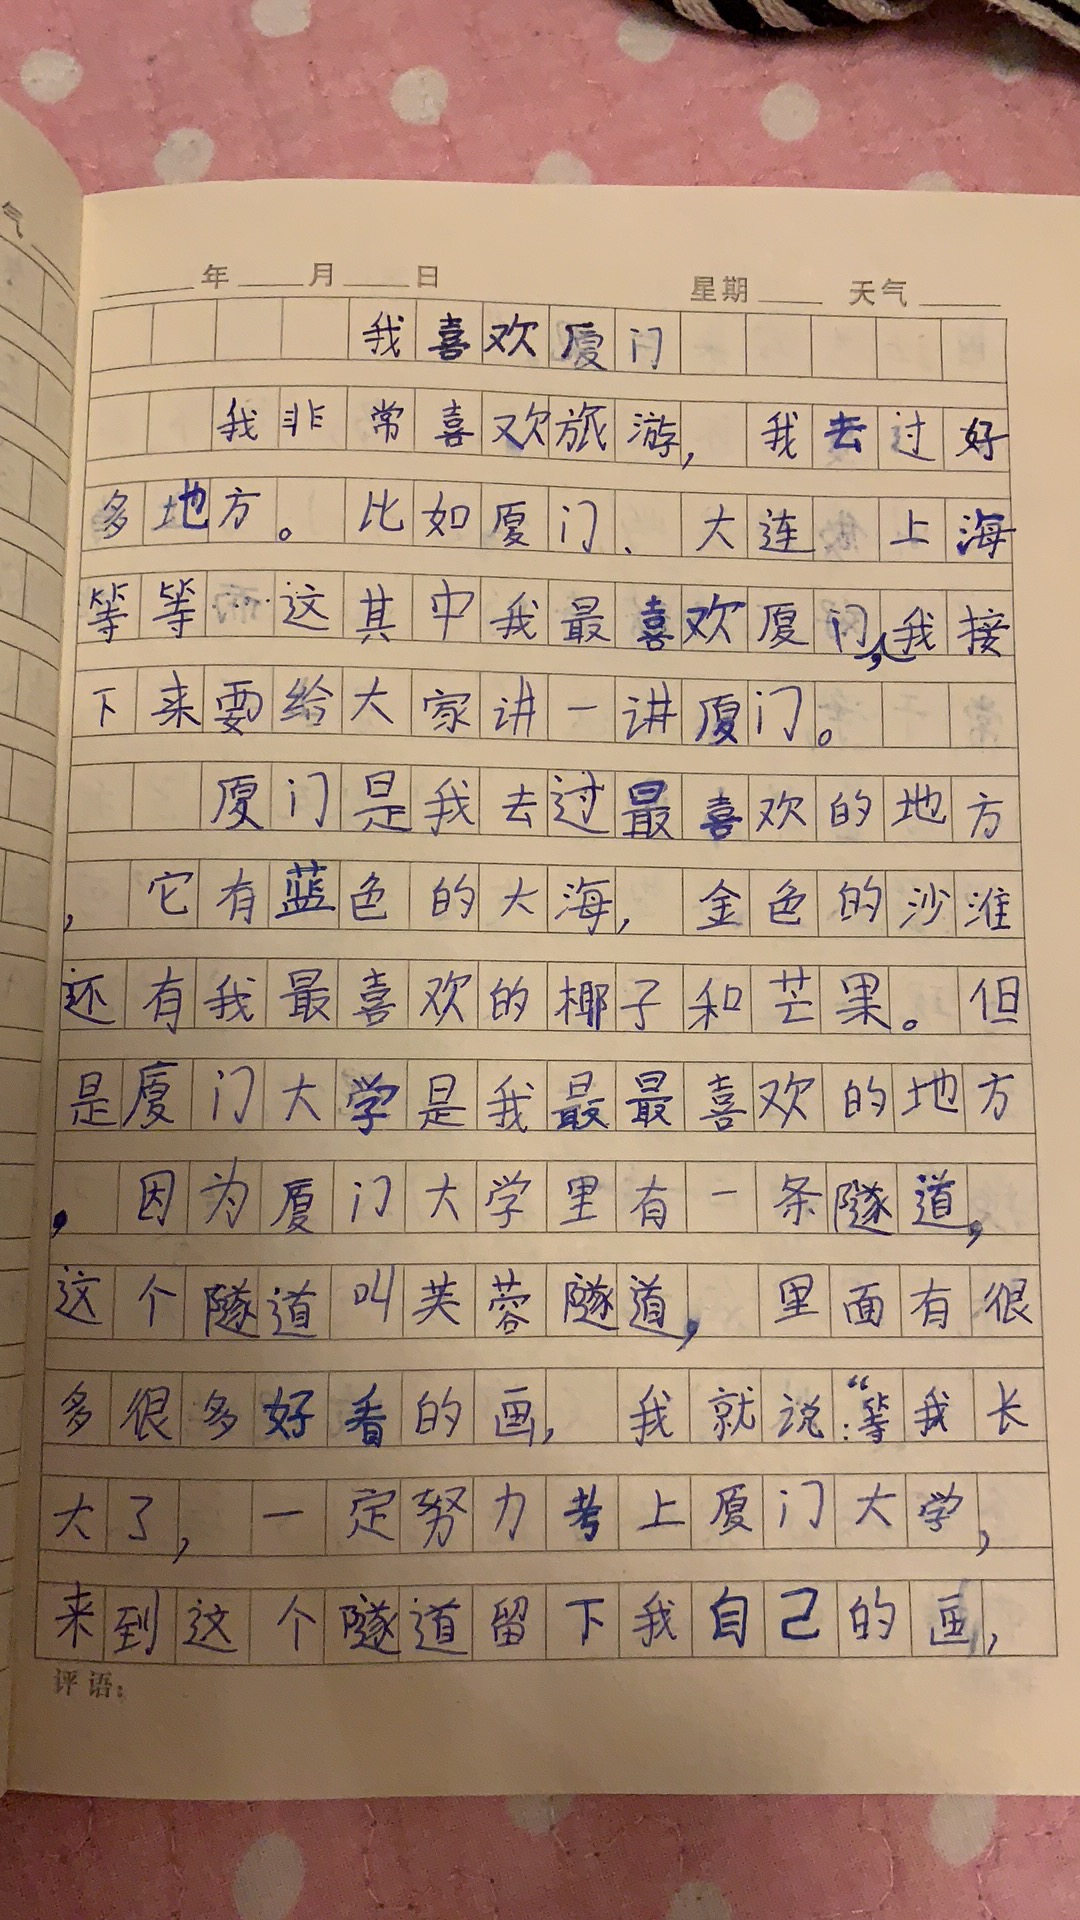 气
年 月 日 星期 天气
我喜欢厦门
我非常喜欢旅游，我去过好
多地方。比如厦门、大连 上海
等等……这其中我最喜欢厦门，我接
下来要给大家讲一讲厦门。
厦门是我去过最喜欢的地方
，它有蓝色的大海，金色的沙滩
还有我最喜欢的椰子和芒果。但
是厦门大学是我最最喜欢的地方
，因为厦门大学里有一条隧道，
这个隧道叫芙蓉隧道，里面有很
多很多好看的画，我就说：“等我长
大了，一定努力考上厦门大学，
来到这个隧道留下我自己的画，
评语：